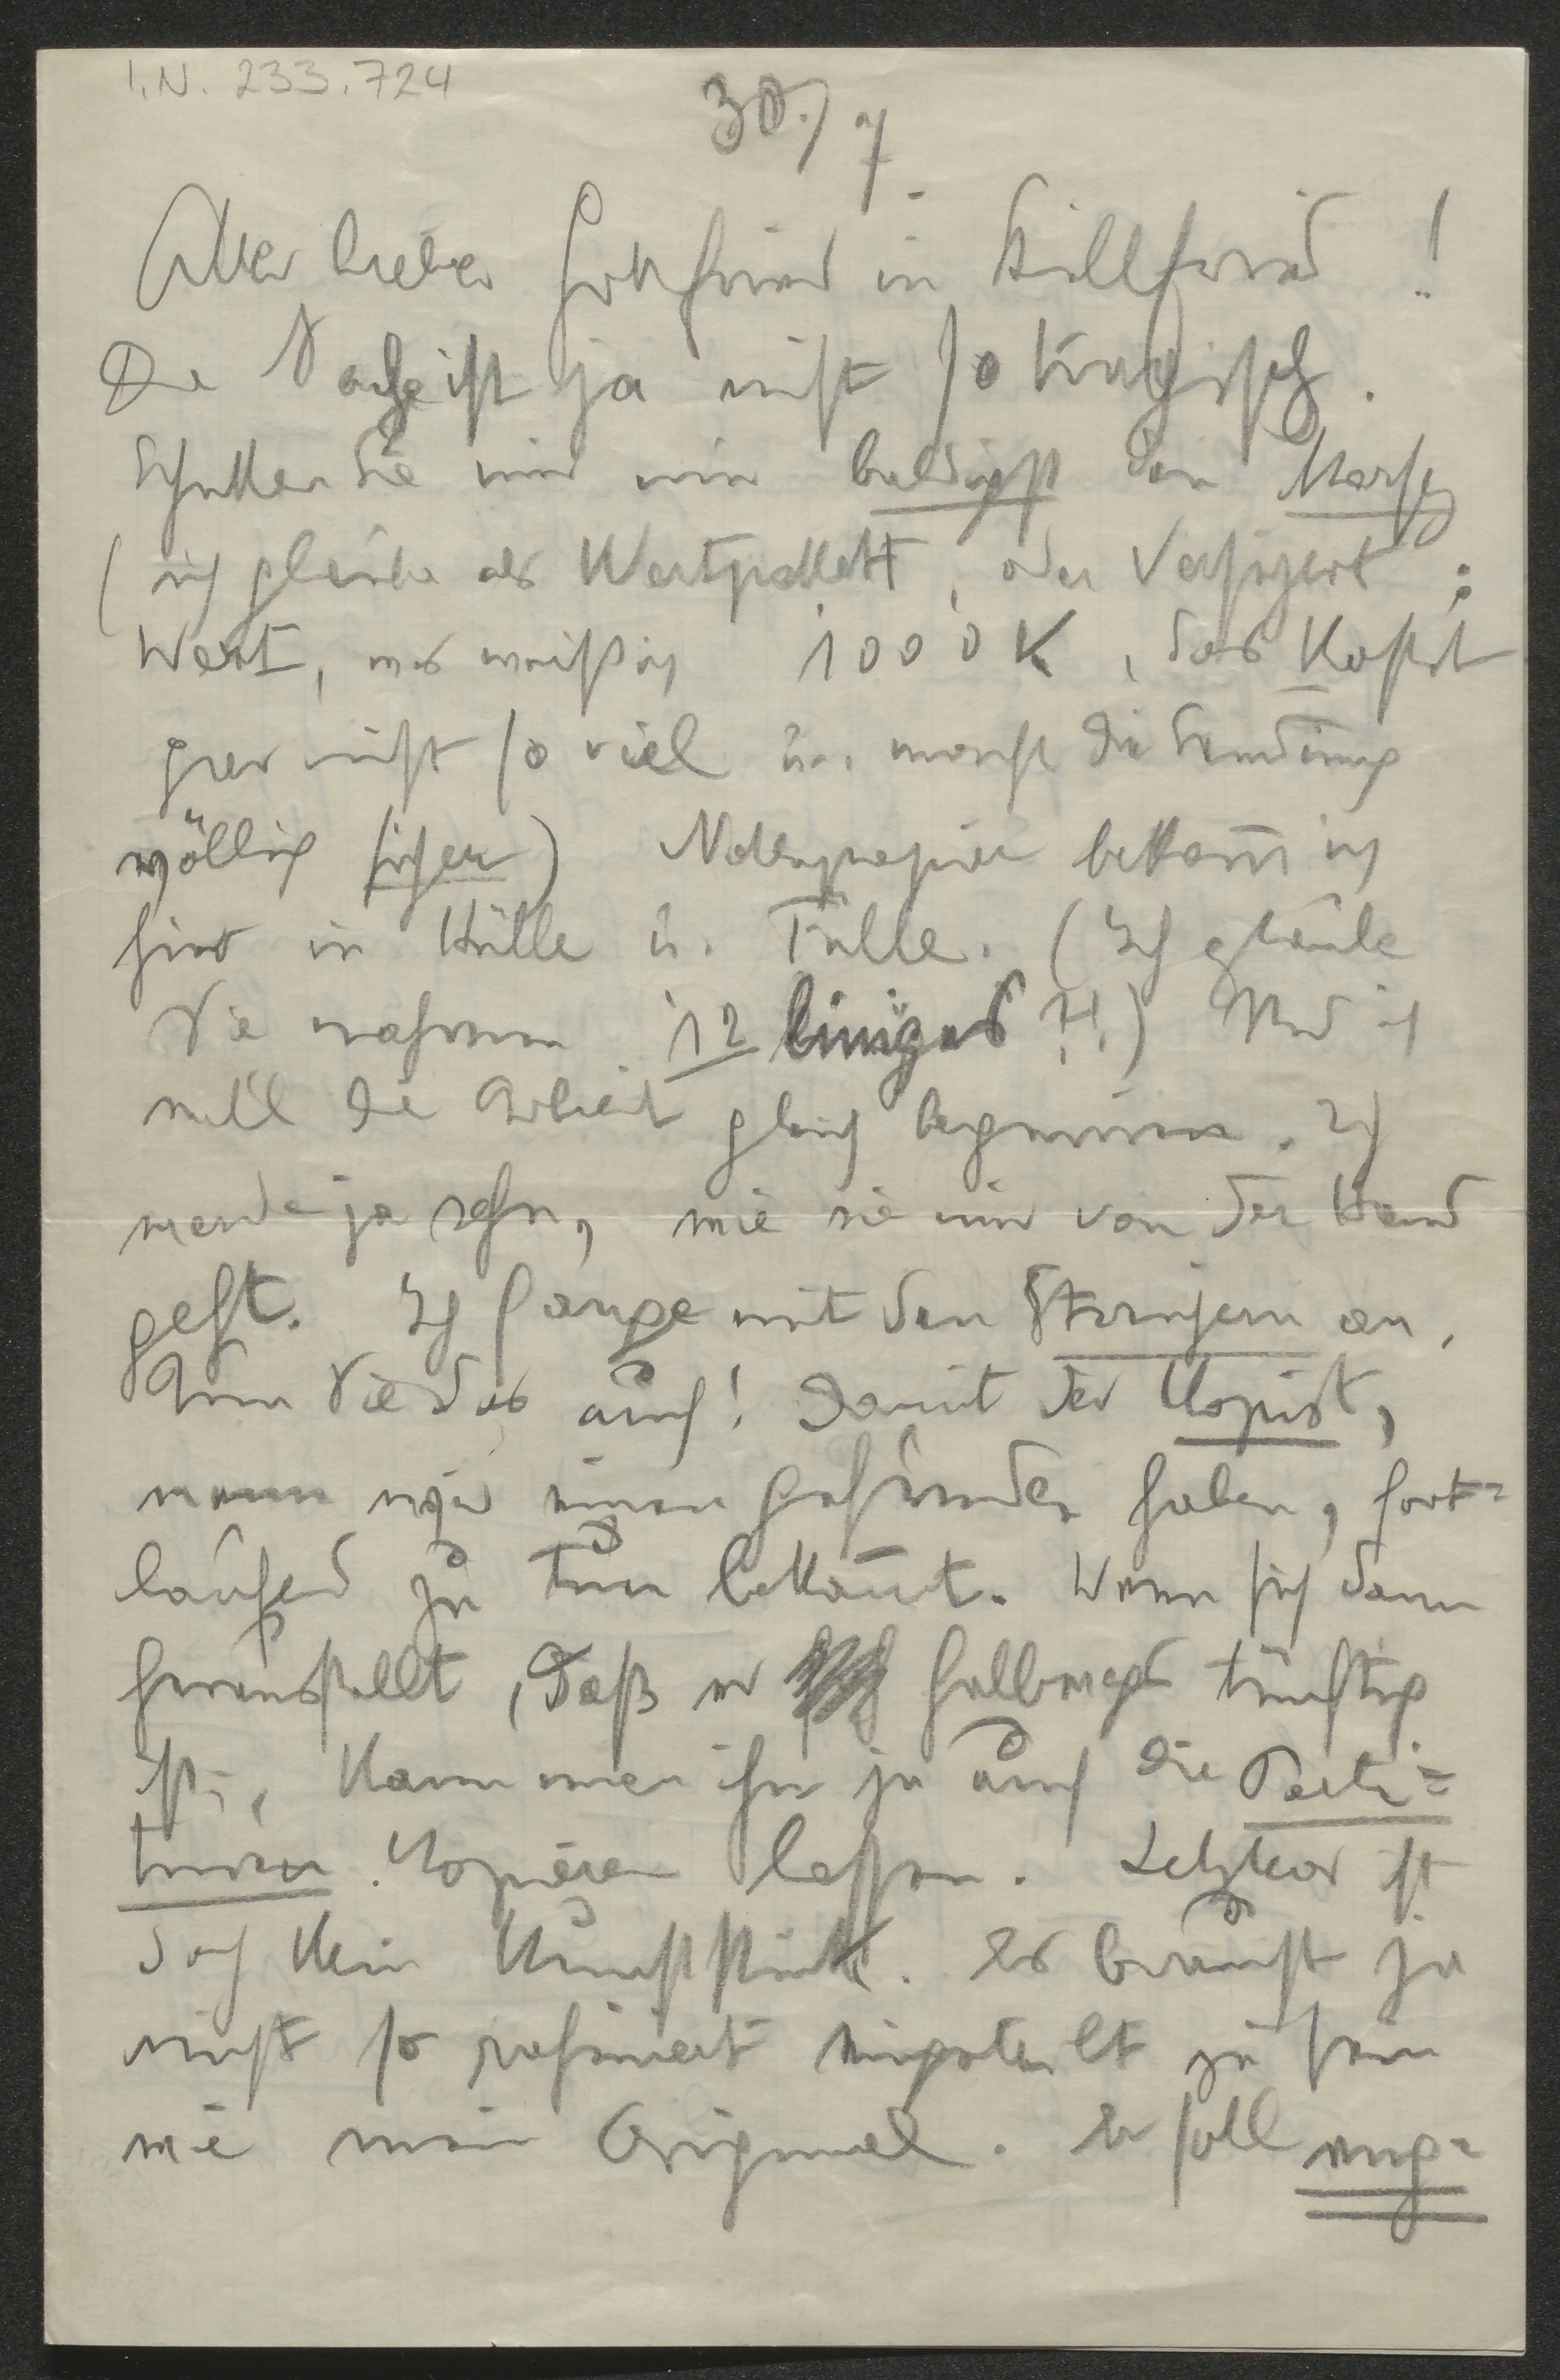 I.N. 233.724
30./7.
Alter lieber Gottfried in Stillfried!
Die Sache ist ja nicht so tragisch.
Schicken Sie mir nur baldigst den Marsch
(ich glaube als Wertpakett, oder Versichert:
Wert, was weiß ich 1000 K, das kostet
gar nicht so viel u. macht die Sendung
völlig sicher) Notenpapier bekom̄ ich
hier in Hülle u. Fülle. (Ich glaube
Sie nahmen 12 liniges?!!) Und ich
will die Arbeit gleich beginnen. Ich
werde ja sehn, wie sie mir von der Hand
geht. Ich fange mit den Streichern an.
Thun Sie das auch! Damit der Kopist,
wenn wir einen gefunden haben, fort=
laufend zu tun bekom̄t. Wenn sich dann
herausstellt, daß er halbwegs tüchtig
ist, kann man ihn ja auch die Parti=
turen kopieren lassen. Letzteres ist
doch kein Kunststück. Es braucht ja
nicht so raffiniert eingeteilt zu sein
wie mein Original. Er soll eng=